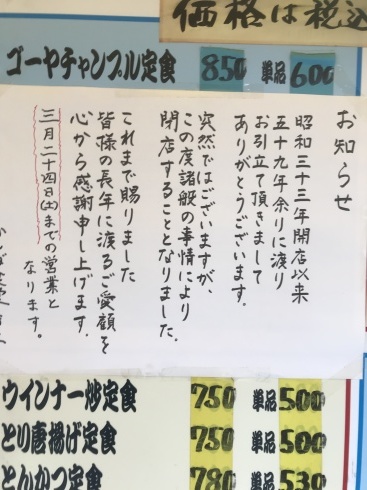 価格は税込
ゴーヤチャンプル定食 850 単品 600
お知らせ
昭和三十三年開店以来
五十九年余りに渡り
お引立て頂きまして
ありがとうございます。
突然ではございますが、
この度諸般の事情により
閉店することとなりました。
これまで賜りました
皆様の長年に渡るご愛顧を
心から感謝申し上げます。
三月二十四日(土)までの営業と
なります。
ウインナー炒定食 750 単品 500
とり唐揚げ定食 750 単品 500
とんかつ定食 780 単品 530